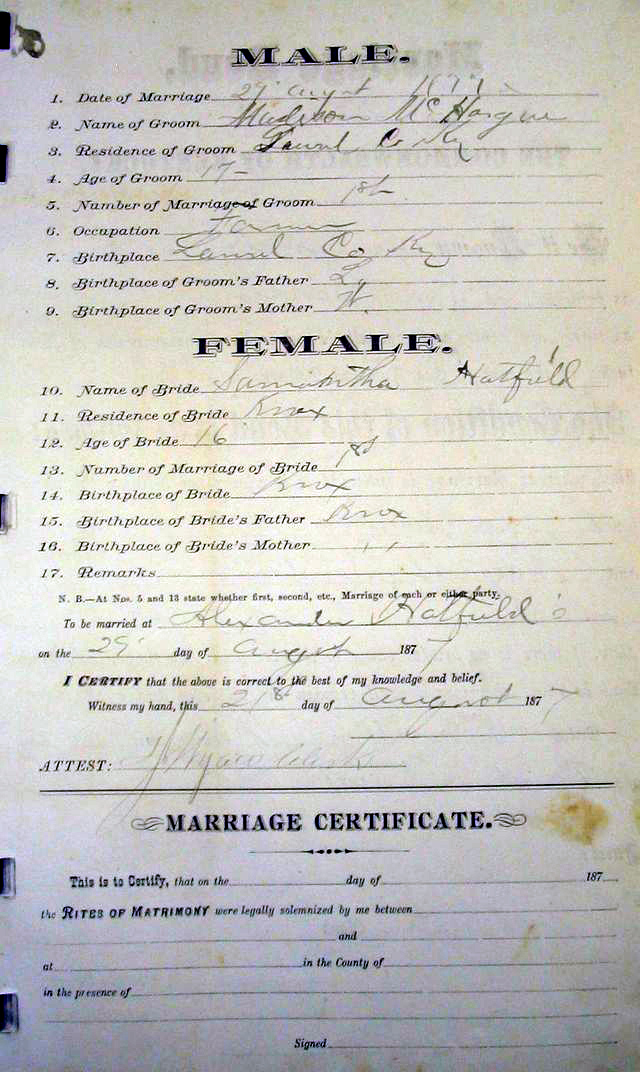 MALE.
1. Date of Marriage 29 august 1877
2. Name of Groom Madison McHargue
3. Residence of Groom Laurel Co Ky
4. Age of Groom 17
5. Number of Marriage of Groom 1st
6. Occupation Farmer
7. Birthplace Laurel Co Ky
8. Birthplace of Groom's Father
9. Birthplace of Groom's Mother
FEMALE.
10. Name of Bride Samantha Hatfield
11. Residence of Bride Knox
12. Age of Bride 16
13. Number of Marriage of Bride 1st
14. Birthplace of Bride Knox
15. Birthplace of Bride's Father Knox
16. Birthplace of Bride's Mother " "
17. Remarks
N. B.—At Nos. 5 and 13 state whether first, second, etc., Marriage of each or either party.
To be married at Alexander Hatfield's
on the 29 day of august 1877
I CERTIFY that the above is correct to the best of my knowledge and belief.
Witness my hand, this 28 day of august 1877
ATTEST: Clerk
MARRIAGE CERTIFICATE.
This is to Certify, that on the day of 187
the RITES OF MATRIMONY were legally solemnized by me between
and
at in the County of
in the presence of
Signed